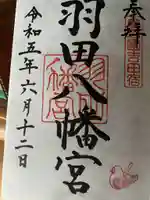 奉拝
羽田八幡宮
令和五年六月十二日